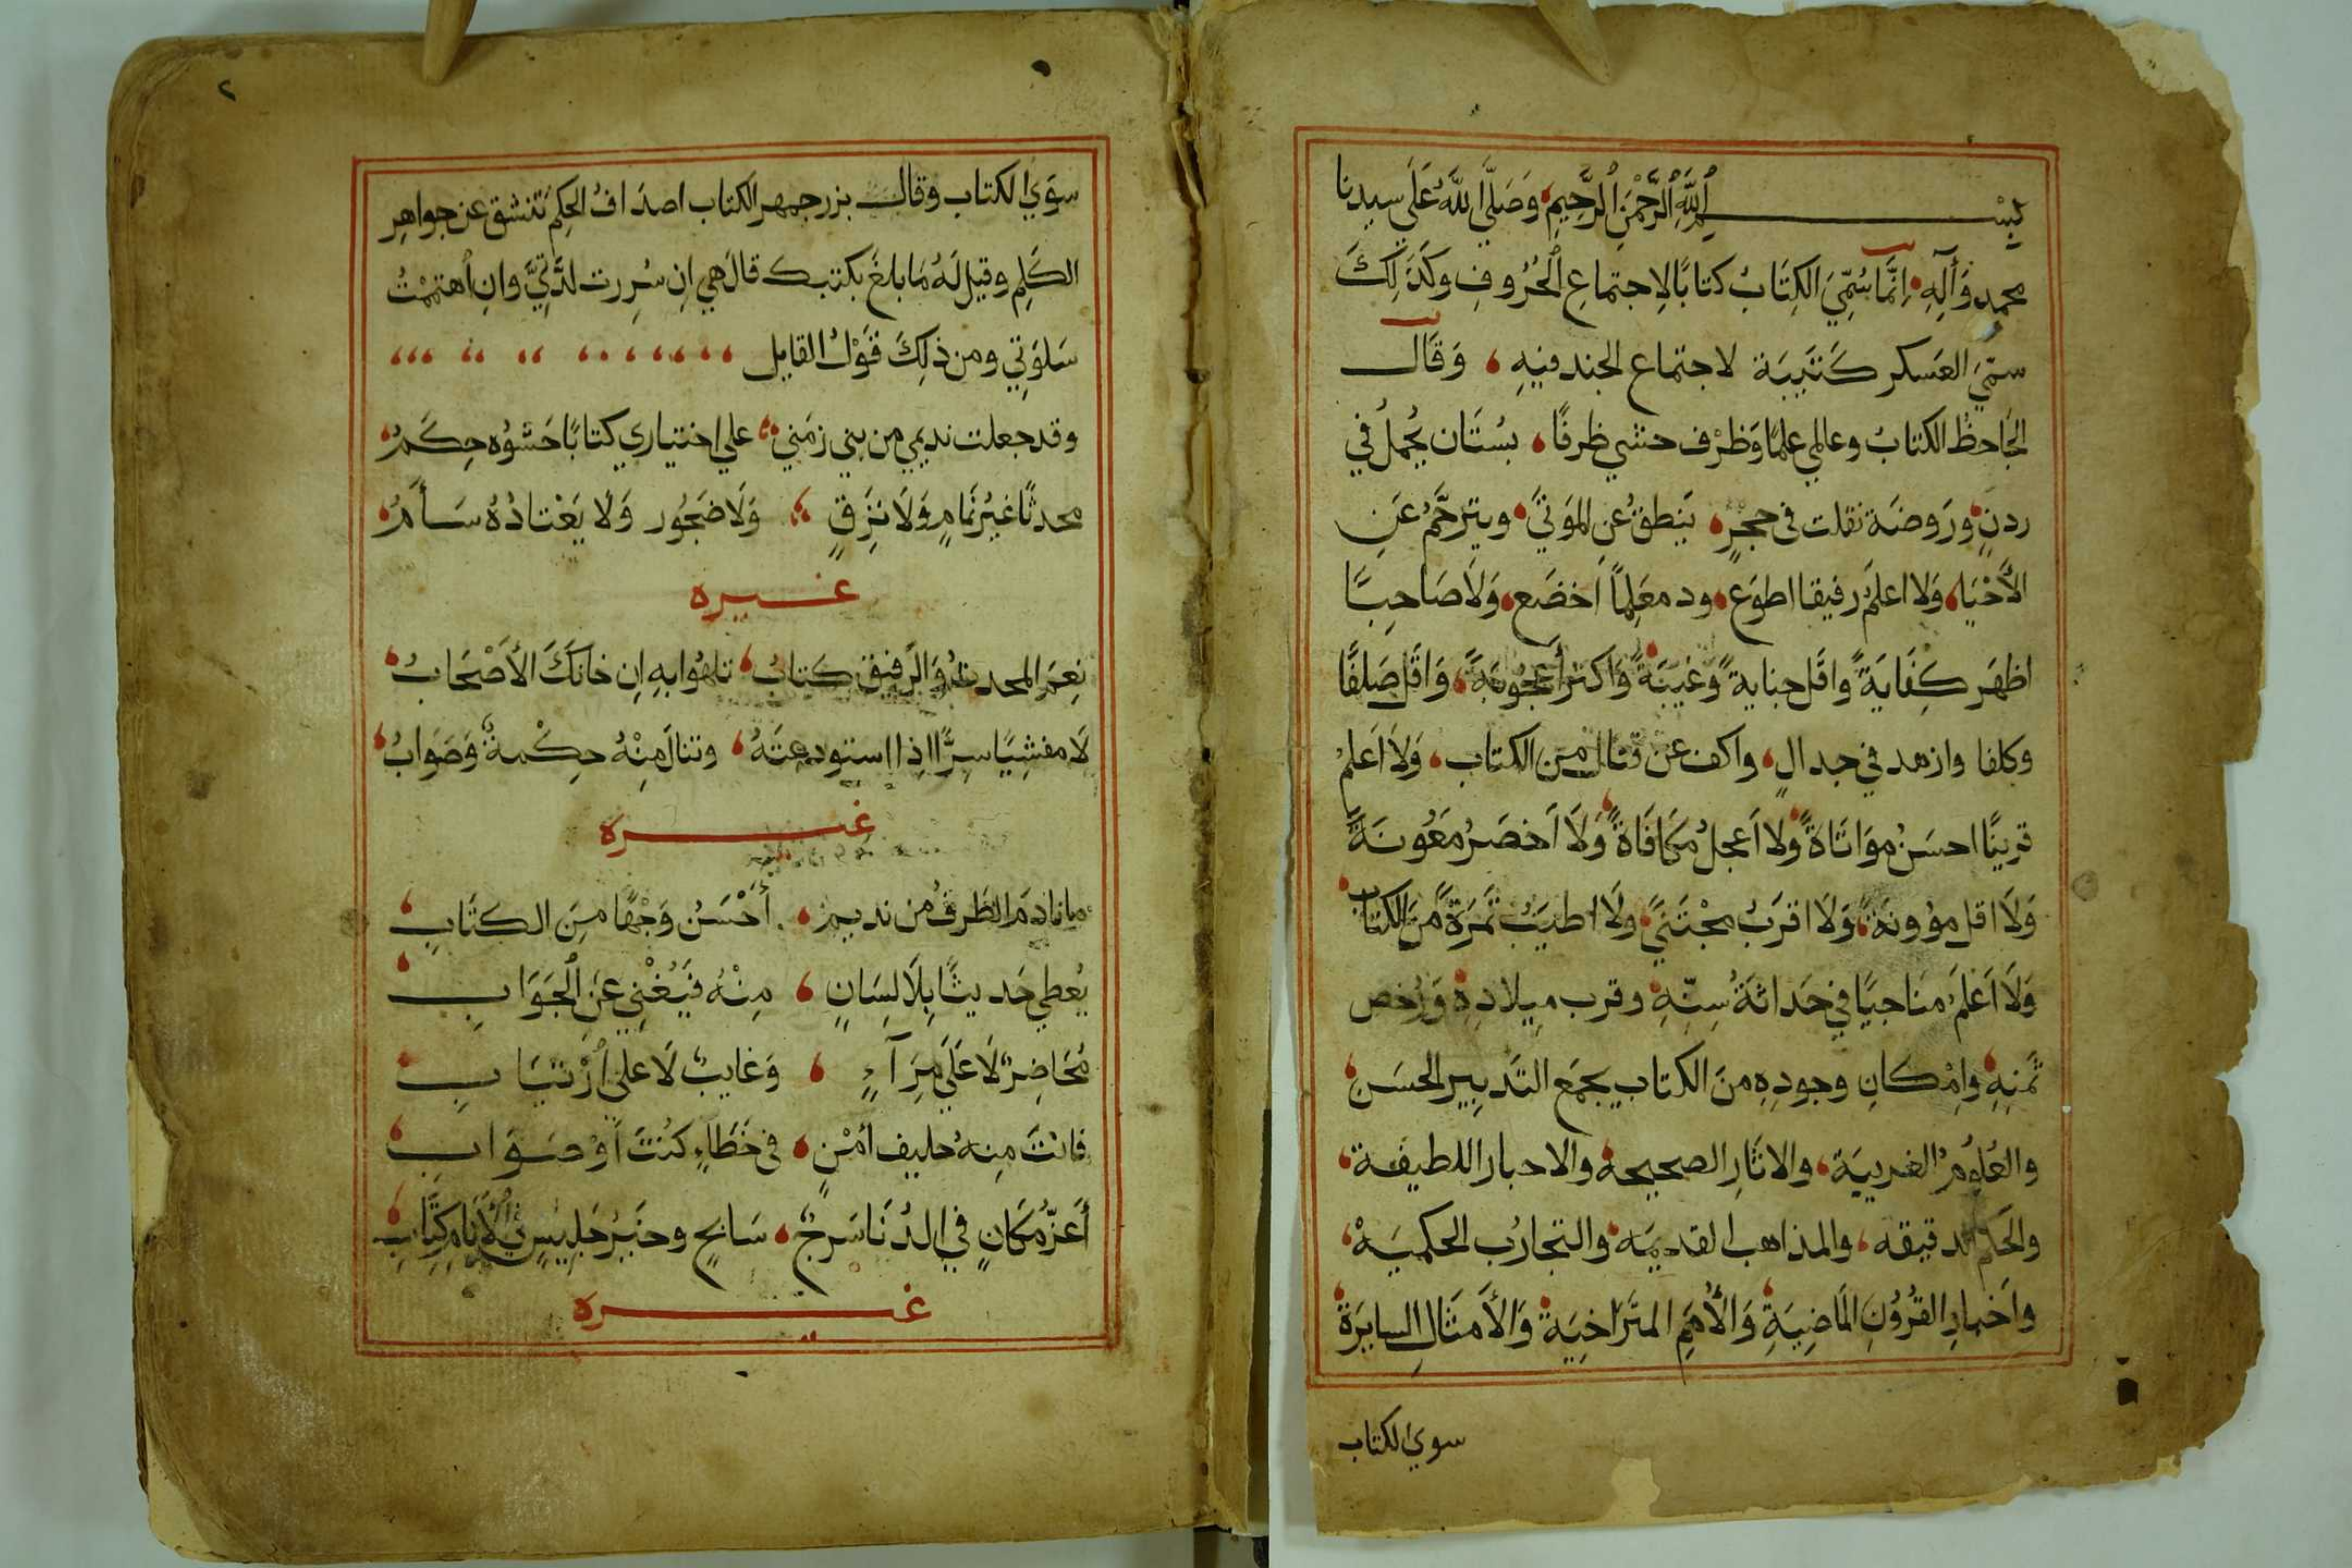 بسم الله الرحمن الرحيم وصلى الله على سيدنا
محمد وآله إنما سُمّيَ الكِتَابُ كتابًا لاجتماعِ الحُرُوفِ وكذَلِكَ
سمّيَ العَسكر كَتَيبَة لاجتماع الجند فيهِ وَقَال
الجَاحظُ الكتابُ وعالمي علمًا وَظَرْف حشي ظرفًا بسُتَان يُحملُ في
ردنٍ ورَوضَة نقلت في حجْرٍ يَنطقُ عنِ الموَتيَ ويترجَّمُ عَنِ
الأَحْيَاء وَلا اعلمُ رفيقا اطوَع ود معَلِمًا اخضَع وَلَا صَاحِبًا
اظهَر كِفَايَةً واقل جناية وَغيبَةً وَاكثر أعجُوبَةً وَاقل صَلفًا
وكلفا وازهد في جدالٍ واكف عَن قتال من الكتاب وَلَا اعلمُ
قرينًا احسَنُ موَاتَاةً ولا اَعجلُ مكافَاةً وَلَا اَخصَرُ مَعُونَةً
وَلَا اقل مؤونَة وَلَا اقرَبُ مجْتَنَيً ولَا اطيَبُ ثَمَرَةً منَ الكتابِ
وَلَا اَعْلَمُ مناجيًا في حَداثةُ سِنّهِ وقرب ميلادِهِ وَرُخص
ثمنهِ وامْكانِ وجودِهِ منَ الكتاب يجمَع التدبيرِ الحسَن
والعُلُومُ الغريبَة والاثَارِ الصحيحه والاحبار اللطيفة
والحَكم الدقيقه والمذاهب القديمَه والتجارُب الحكميَهْ
واَخبارِ القرُوُنِ الماضِيَةِ وَالأُمَمِ المتَرَاخِيَة وَالأَمثَالِ السايرَة
سوي الكتاب
٢
سوَي الكتاب وقال بزرجمهر الكتاب اصدَافُ الحِكمَ تنشق عن جواهرِ
الكَلِم وقيل لَهُ مَا بلغَ بكتبك قالَ هي اِن سُرِرت لذَّتِيَّ وان اْهتممْتُ
سَلوَتِي ومن ذلِكَ قَوْلُ القايل
وقد جعلت نديمي من بني زمَني علي اختياري كتابًا حَشوُه حِكَمُ
محدثًا غيْرَ نمَامٍ وَلَا نَزِقٍ وَلَا ضَجُور وَلَا يَعْتادُهُ سَأَمُ
غيره
نِعمَ المحدثُ وَالرَفيق كَتابُ تلهُوا بهِ اِن خانَكَ الأَصْحَابُ
لَا مفشِيًا سِرًّا اذِا استودعتَهُ وتنالَ منِْهُ حِكْمةٌ وَصَوَابُ
غيره
ما نادمَ الظَرفُ من نديمٍ أحْسَنُ وَجْهًا مِنَ الكتَابِ
يُعطي حَديثًا بِلَا لِسَانٍ مِنْهُ فَيُغْنِي عَنِ الْجَوَابِ
مُحَاضِرٌ لَا عَلَي مِرَآءٍ وَغايبٌ لَا على اْرْتيَابِ
فانتَ مِنهُ حليف أَمْنٍ في خَطَاءٍ كنُتَ اَوْ صَوَابِ
أَعَزّ مكَانٍ في الدُنَا سَرجٌ سَابحٍ وخيَرُ جَليسٍ في الأَنَامِ كِتَابِ
غيره